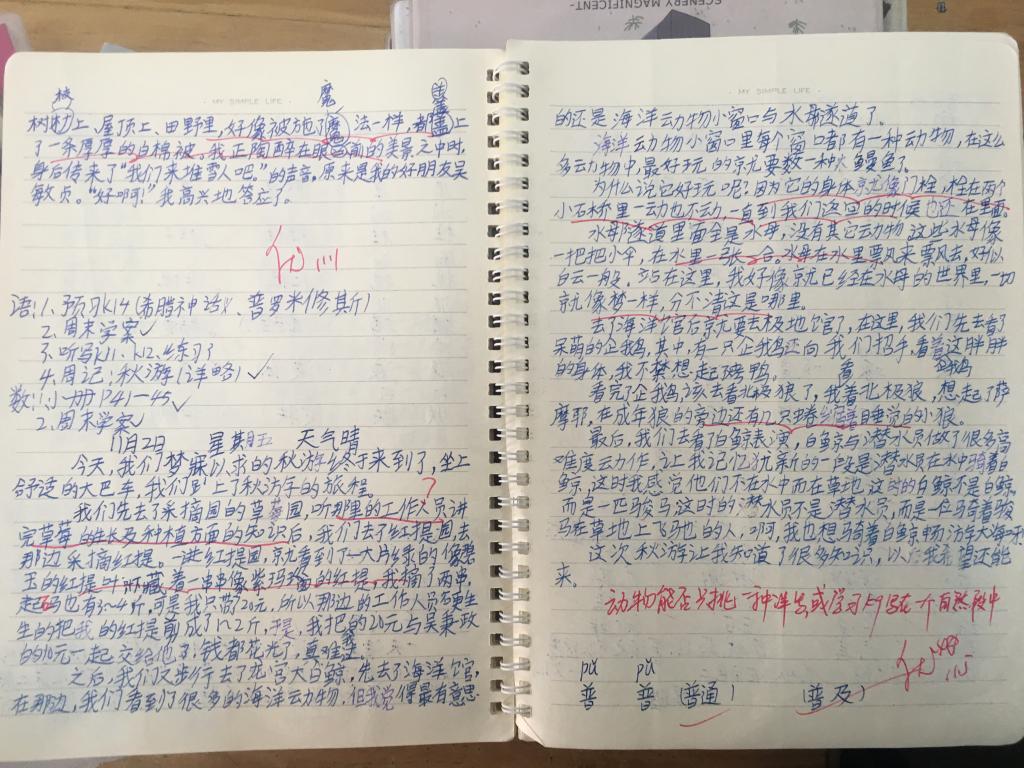 SCENERY MAGNIFICENT-
· MY SIMPLE LIFE ·
枝 魔 盖
树上、屋顶上、田野里,好像被施了魔法一样,盖上
了一条厚厚的白棉被。我正陶醉在眼前的美景之中时,
身后传来了“我们来堆雪人吧。”的声音。原来是我的好朋友吴
敏贞。“好啊!”我高兴地答应了。
语:1、预习K14(希腊神话、普罗米修斯)
2.周末学案✓
3.听写K11、K12、练习了
4.周记:秋游(详略)✓
数:1.小册P41—45✓
2.周末学案✓
11月2日 星期五 天气晴
今天,我们梦寐以求的秋游终于来到了,坐上
舒适的大巴车,我们上了秋访学的旅程。
?
我们先去了采摘园的草莓园,听那里的工作人员讲
完草莓的生长及种植方面的知识后,我们去了红提园去
那边采摘红提。一进红提园,就看到了一大片绿的像翡
玉的红提叶所藏着一串串像紫玛瑙的红提,我摘了两串,
起码也有3~4斤,可是我只带20元,所以那边的工作人员硬生
生的把我的红提剪成了1.2斤,于是,我把的20元与吴秉政
的10元一起交给他了,钱都花光了,真难受。
之后,我们又步行去了龙宫大白鲸,先去了海洋馆,
在那边,我们看到了很多的海洋动物,但我觉得最有意思
· MY SIMPLE LIFE ·
的还是海洋动物小窗口与水母遂道了。
海洋动物小窗口里每个窗口都有一种动物,在这么
多动物中,最好玩的京尤要数一种火鳗鱼了。
为什么说它好玩呢?因为它的身体就像门栓,栓在两个
小石林里一动也不动,一直到我们返回的时候还在里面。
水母遂道里面全是水母,没有其它动物。这些水母像
一把把小伞,在水里一张一合。水母在水里票风来票风去,好似
白云一般。站在这里,我好像就已经在水母的世界里,一切
就像梦一样,分不清这是哪里。
去了海洋馆后就要去极地馆了,在这里,我们先去看了
呆萌的企鹅,其中,有一只企鹅还向我们招手,看着这胖胖
的身体,我不禁想起了烤鸭。 着 企鹅
看完了企鹅,该去看北极狼了,我看北极狼,想起了萨
摩耶,在成年狼的旁边还有几只卷缩睡觉的小狼。
最后,我们去看了白鲸表演,白鲸与潜水员做了很多高
难度动作,让我记忆犹新的一段是潜水员在水中骑着白
鲸,这时我感觉他们不在水中而在草地,这时的白鲸不是白鲸
而是一匹骏马,这时的潜水员不是潜水员,而是一位骑着骏
马在草地上飞马也的人,啊,我也想骑着白鲸畅游大海呀
这次秋游让我知道了很多知识,以后我希望还能
来。
动物能否只挑一种详写
pǔ pǔ
普 普 (普通) (普及)